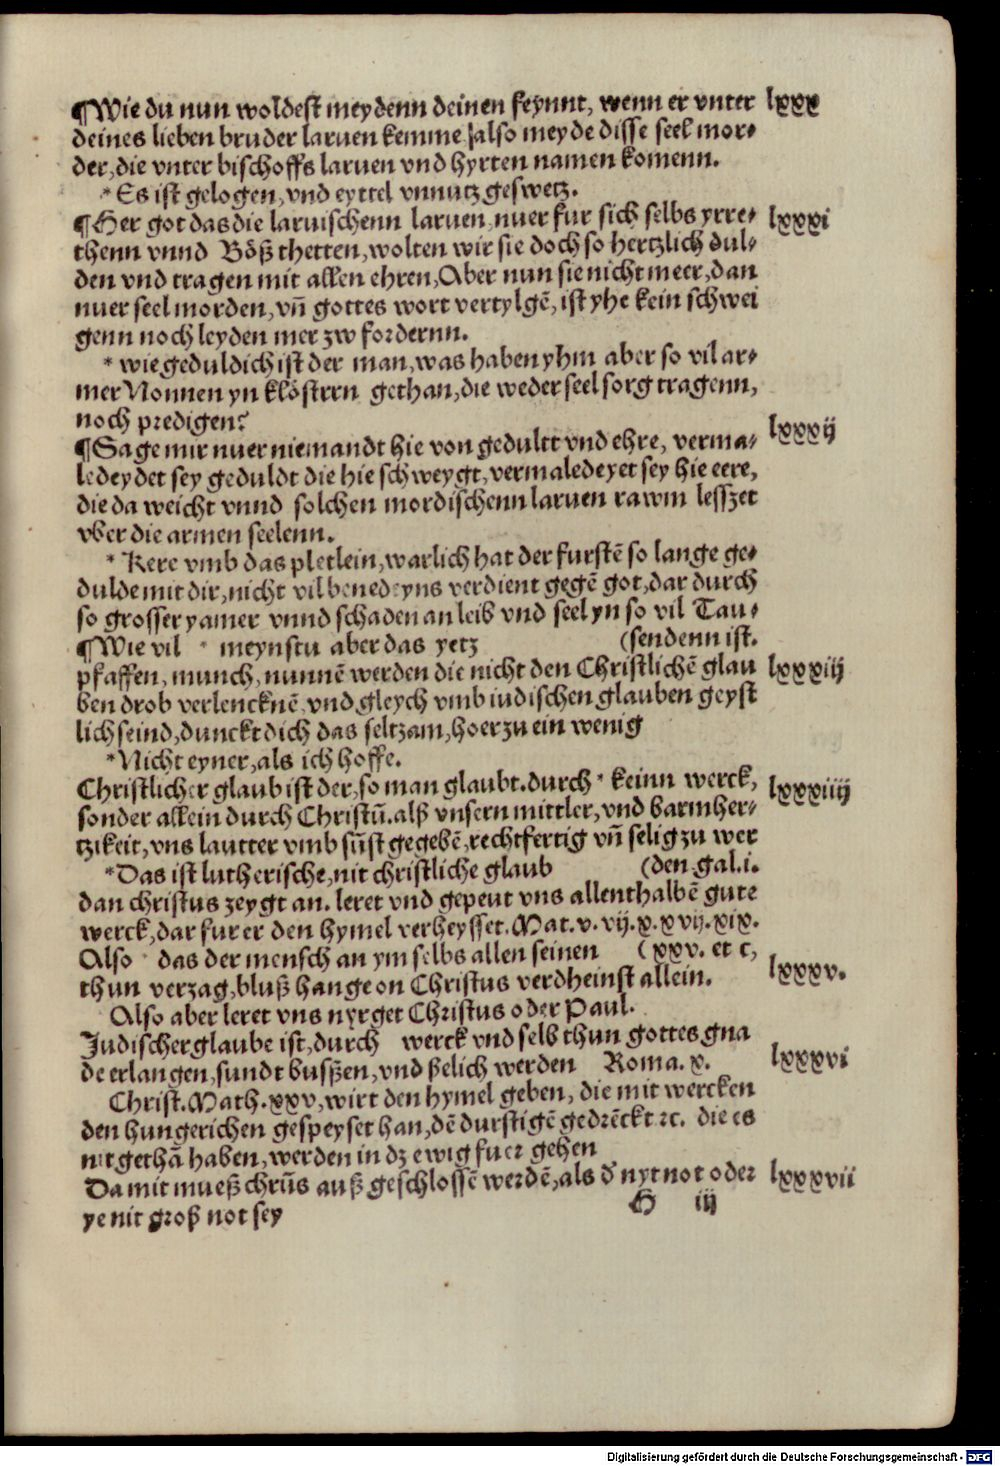 ¶Wie du nun woldest meydenn deinen feynnt, wenn er vnter lxxx
deines lieben bruder laruen kemme also meyde disse seel mor⸗
der, die vnter bischoffs laruen vnd hyrten namen komenn.
* Es ist gelogen, vnd eyttel vnnutz geswetz.
¶Her got das die laruischenn laruen, nuer fur sich selbs yrre⸗ lxxxi
thenn vnnd Böß thetten, wolten wir sie doch so hertzlich dul⸗
den vnd tragen mit allen ehren, Aber nun sie nicht meer, dan
nuer seel morden, vn̄ gottes wort vertylgē, ist yhe kein schwei
genn noch leyden mer zw fordernn.
* wie geduldich ist der man, was haben yhm aber so vil ar⸗
mer Nonnen yn klöstrrn gethan, die weder seel sorg tragenn,
noch predigen?
¶Sage mir nuer niemandt hie von gedultt vnd ehre, verma⸗ lxxxij
ledeydet sey geduldt die hie schweygt, vermaledeyet sey hie eere,
die da weicht vnnd solchen mordischenn laruen rawm lesszet
vber die armen seelenn.
* Kere vmb das pletlein, warlich hat der furstē so lange ge⸗
dulde mit dir, nicht vil benedeyns verdient gegē got, dar durch
so grosser yamer vnnd schaden an leib vnd seel yn so vil Tau⸗
¶Wie vil * meynstu aber das yetz (sendenn ist.
pfaffen, munch, nunnē werden die nicht den Christlichē glau lxxxiij
ben drob verlencknē, vnd gleych vmb iudischen glauben geyst
lich seind, dunckt dich das seltzam, hoer zu ein wenig
* Nicht eyner, als ich hoffe.
Christlicher glaub ist der, so man glaubt. durch * keinn werck, lxxxiiij
sonder allein durch Christū. alß vnsern mittler, vnd barmher⸗
tzikeit, vns lautter vmb sūst gegebē, rechtfertig vn̄ selig zu wer
* Das ist lutherische, nit christliche glaub (den. gal. i.
dan christus zeygt an. leret vnd gepeut vns allenthalbē gute
werck, dar fur er den hymel verheysset. Mat. v. vij. x. xvij. xix.
Also * das der mensch an ym selbs allen seinen (xxv. et c,
thun verzag, bluß hange on Christus verdheinst allein. lxxxv.
Also aber leret vns nyrget Christus oder Paul.
Judischer glaube ist, durch werck vnd selb thun gottes gna
de erlangen, sundt bussen, vnd ßelich werden Roma. x. lxxxvi
Christ. Math. xxv, wirt den hymel geben, die mit wercken
den hungerichen gespeyset han, dē durstigē gedrēckt ꝛc. die es
nit gethā haben, werden in dz ewig fuer gehen
Da mit mueß chrūs auß geschlossē werdē, als d' nyt not oder lxxxvii
ye nit groß not sey
H iij
Digitalisierung gefördert durch die Deutsche Forschungsgemeinschaft - DFG